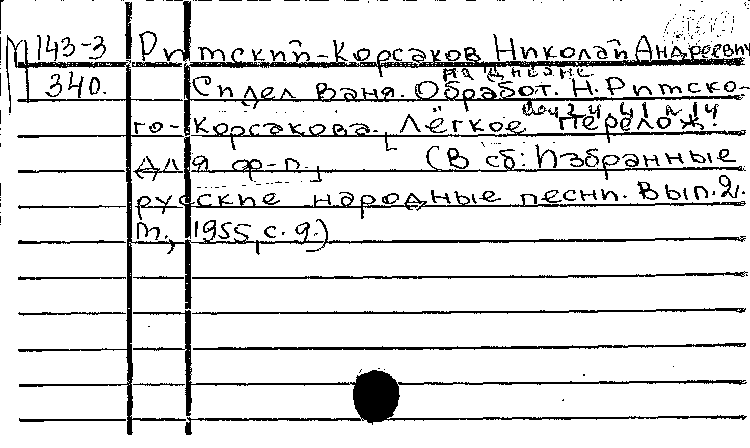 М 143-3 Римский-Корсаков Николай Андреевич
340. Сидел Ваня. Обработ. Н. Римско-
на диване
го-Корсакова. [Лёгкое перелож.
для ф-п.] (В сб: Избранные
русские народные песни. Вып. 2.
М., 1955, с. 9.)